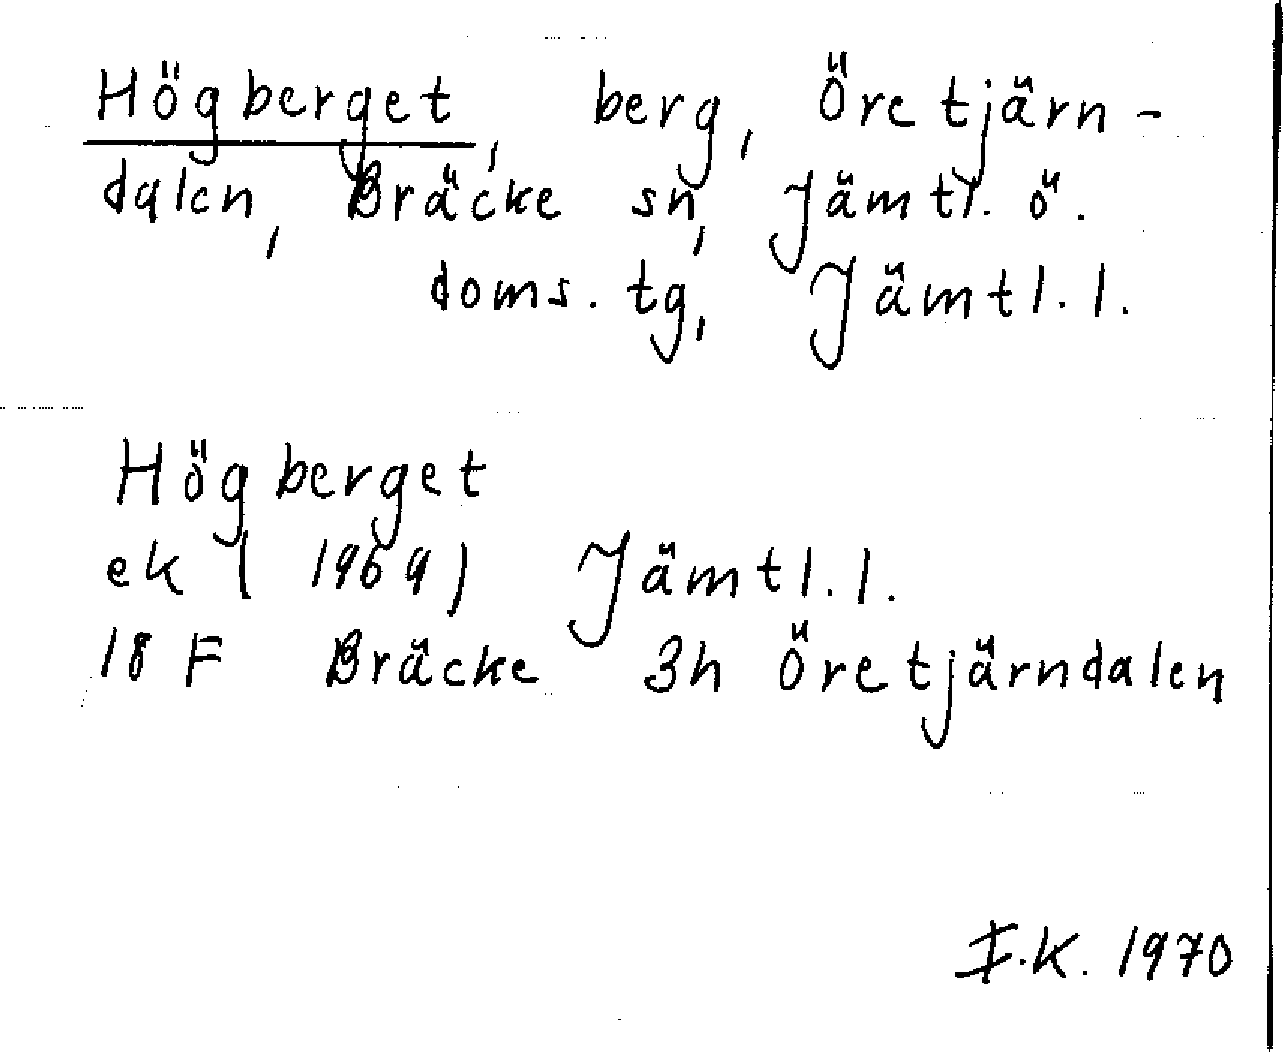 Högberget, berg, Öretjärn-
dalen, Bräcke sn, Jämtl. ö.
doms. tg, Jämtl. l.
Högberget
ek (1969) Jämtl. l.
18 F Bräcke 3h Öretjärndalen
I.K. 1970